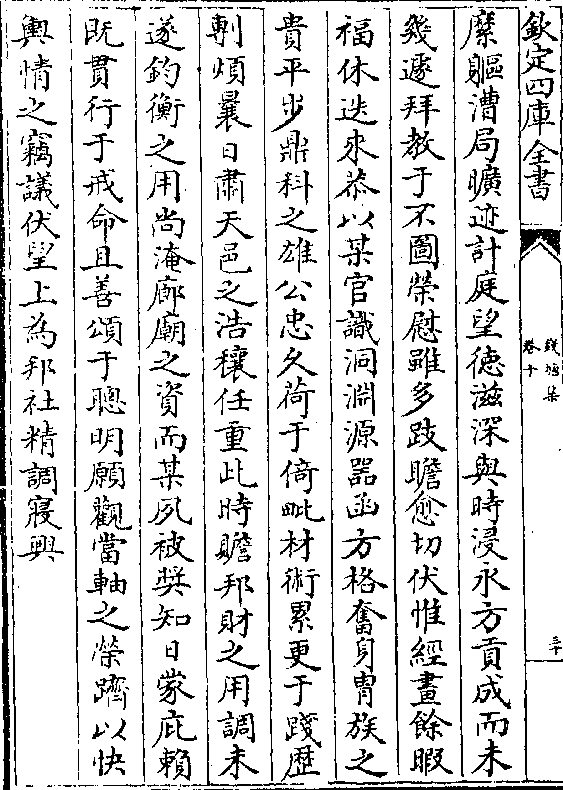 欽定四庫全書
錢塘集
卷十
三十
縻軀漕局曠迹計庭望徳滋深與時浸永方貢成而未
幾遽拜教于不圖榮慰雖多跂瞻愈切伏惟經畫餘暇
福休迭來恭以某官識洞淵源器函方格奮身胄族之
貴平步鼎科之雄公忠久荷于倚毗材術累更于踐歴
剸煩曩日肅天邑之浩穰任重此時贍邦財之用調未
遂鈞衡之用尚淹廊廟之資而某夙被奬知日蒙庇賴
既貫行于戒命且善頌于聰明願觀當軸之榮躋以快
輿情之竊議伏望上為邦社精調寢興